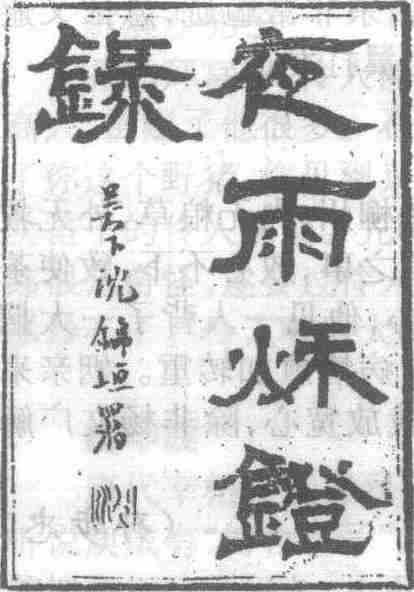 夜雨秌鐙
錄
吳下沈錦垣署